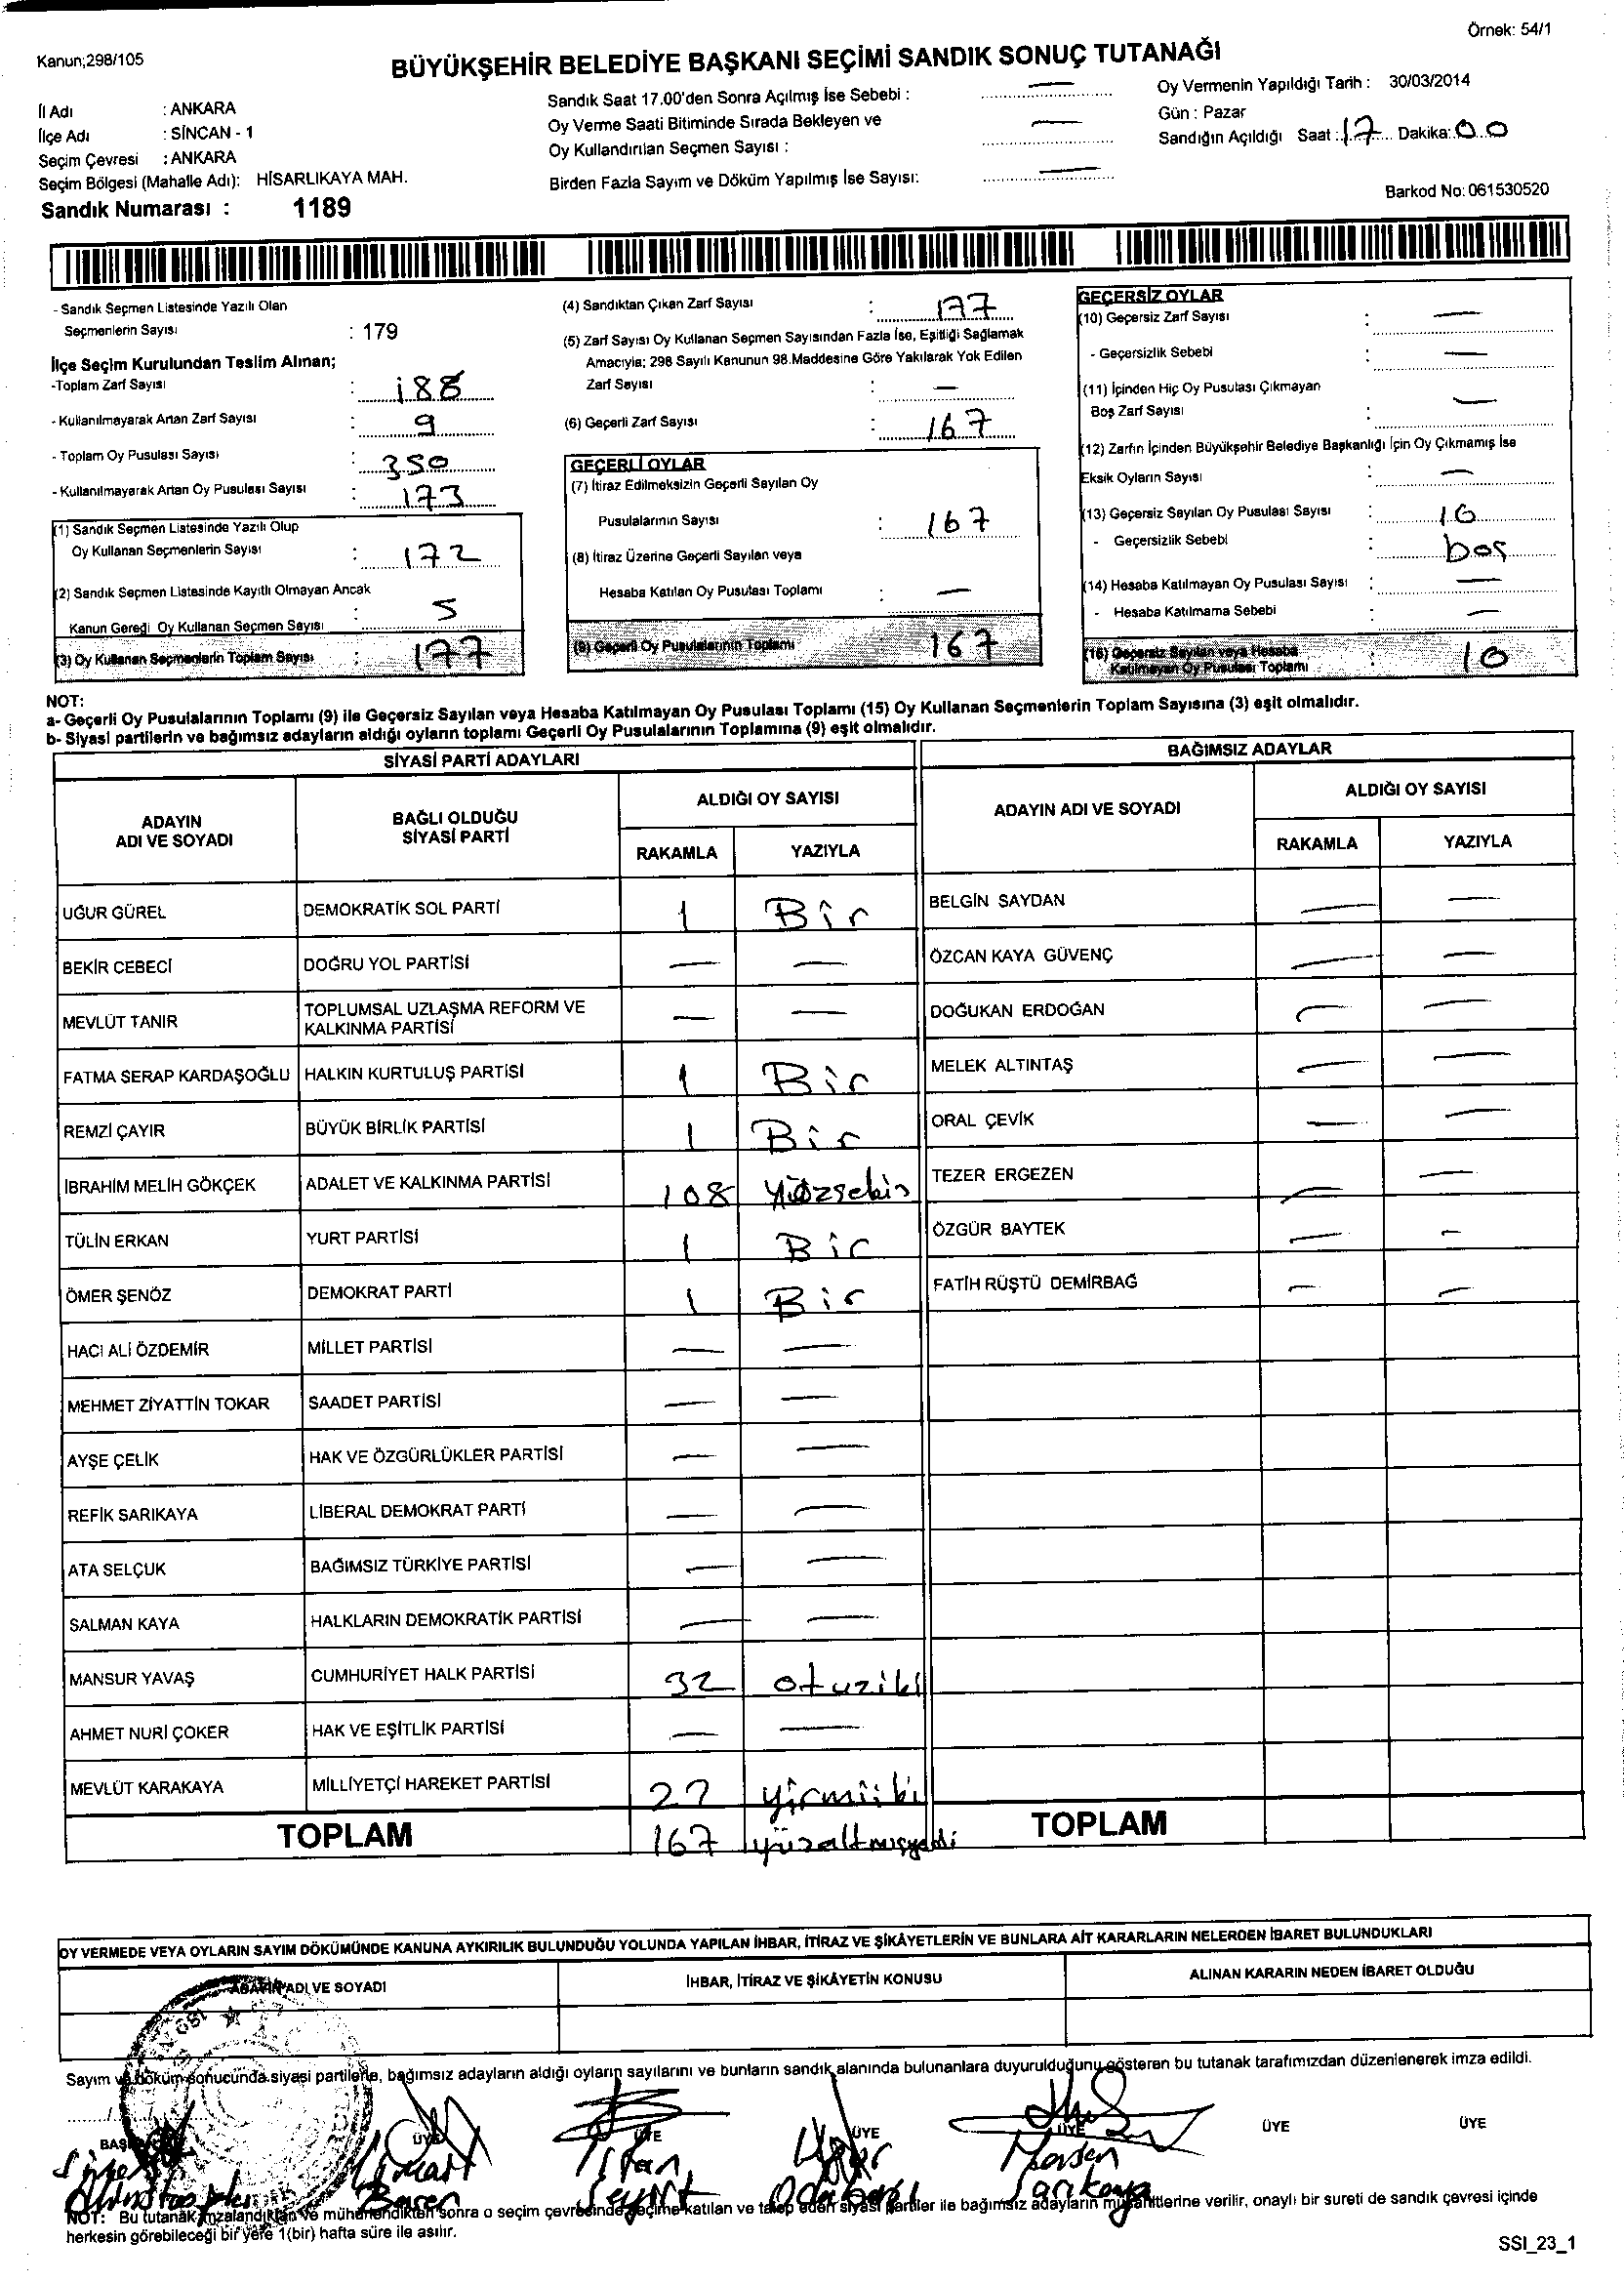 Örnek: 54/1
Kanun;298/105
BÜYÜKŞEHİR BELEDİYE BAŞKANI SEÇİMİ SANDIK SONUÇ TUTANAĞI
İl Adı : ANKARA
İlçe Adı : SİNCAN - 1
Seçim Çevresi : ANKARA
Seçim Bölgesi (Mahalle Adı): HİSARLIKAYA MAH.
Sandık Numarası : 1189
Sandık Saat 17.00'den Sonra Açılmış İse Sebebi : —
Oy Verme Saati Bitiminde Sırada Bekleyen ve
Oy Kullandırılan Seçmen Sayısı : —
Birden Fazla Sayım ve Döküm Yapılmış İse Sayısı: —
Oy Vermenin Yapıldığı Tarih : 30/03/2014
Gün : Pazar
Sandığın Açıldığı Saat : 17 Dakika: 00
Barkod No: 061530520
- Sandık Seçmen Listesinde Yazılı Olan
Seçmenlerin Sayısı : 179
İlçe Seçim Kurulundan Teslim Alınan;
-Toplam Zarf Sayısı : 188
- Kullanılmayarak Artan Zarf Sayısı : 9
- Toplam Oy Pusulası Sayısı : 350
- Kullanılmayarak Artan Oy Pusulası Sayısı : 173
(1) Sandık Seçmen Listesinde Yazılı Olup
Oy Kullanan Seçmenlerin Sayısı : 172
(2) Sandık Seçmen Listesinde Kayıtlı Olmayan Ancak
Kanun Gereği Oy Kullanan Seçmen Sayısı : 5
(3) Oy Kullanan Seçmenlerin Toplam Sayısı : 177
(4) Sandıktan Çıkan Zarf Sayısı : 177
(5) Zarf Sayısı Oy Kullanan Seçmen Sayısından Fazla İse, Eşitliği Sağlamak
Amacıyla; 298 Sayılı Kanunun 98.Maddesine Göre Yakılarak Yok Edilen
Zarf Sayısı : —
(6) Geçerli Zarf Sayısı : 167
GEÇERLİ OYLAR
(7) İtiraz Edilmeksizin Geçerli Sayılan Oy
Pusulalarının Sayısı : 167
(8) İtiraz Üzerine Geçerli Sayılan veya
Hesaba Katılan Oy Pusulası Toplamı : —
(9) Geçerli Oy Pusulalarının Toplamı 167
GEÇERSİZ OYLAR
(10) Geçersiz Zarf Sayısı : —
- Geçersizlik Sebebi : —
(11) İçinden Hiç Oy Pusulası Çıkmayan
Boş Zarf Sayısı : —
(12) Zarfın İçinden Büyükşehir Belediye Başkanlığı İçin Oy Çıkmamış İse
Eksik Oyların Sayısı : —
(13) Geçersiz Sayılan Oy Pusulası Sayısı : 10
- Geçersizlik Sebebi : boş
(14) Hesaba Katılmayan Oy Pusulası Sayısı : —
- Hesaba Katılmama Sebebi : —
(15) Geçersiz Sayılan veya Hesaba
Katılmayan Oy Pusulası Toplamı : 10
NOT:
a- Geçerli Oy Pusulalarının Toplamı (9) ile Geçersiz Sayılan veya Hesaba Katılmayan Oy Pusulası Toplamı (15) Oy Kullanan Seçmenlerin Toplam Sayısına (3) eşit olmalıdır.
b- Siyasi partilerin ve bağımsız adayların aldığı oyların toplamı Geçerli Oy Pusulalarının Toplamına (9) eşit olmalıdır.
SİYASİ PARTİ ADAYLARI
ADAYIN ADI VE SOYADI
BAĞLI OLDUĞU SİYASİ PARTİ
ALDIĞI OY SAYISI
RAKAMLA YAZIYLA
UĞUR GÜREL DEMOKRATİK SOL PARTİ 1 Bir
BEKİR CEBECİ DOĞRU YOL PARTİSİ — —
MEVLÜT TANIR TOPLUMSAL UZLAŞMA REFORM VE KALKINMA PARTİSİ — —
FATMA SERAP KARDAŞOĞLU HALKIN KURTULUŞ PARTİSİ 1 Bir
REMZİ ÇAYIR BÜYÜK BİRLİK PARTİSİ 1 Bir
İBRAHİM MELİH GÖKÇEK ADALET VE KALKINMA PARTİSİ 108 Yüzsekiz
TÜLİN ERKAN YURT PARTİSİ 1 Bir
ÖMER ŞENÖZ DEMOKRAT PARTİ 1 Bir
HACI ALİ ÖZDEMİR MİLLET PARTİSİ — —
MEHMET ZİYATTİN TOKAR SAADET PARTİSİ — —
AYŞE ÇELİK HAK VE ÖZGÜRLÜKLER PARTİSİ — —
REFİK SARIKAYA LİBERAL DEMOKRAT PARTİ — —
ATA SELÇUK BAĞIMSIZ TÜRKİYE PARTİSİ — —
SALMAN KAYA HALKLARIN DEMOKRATİK PARTİSİ — —
MANSUR YAVAŞ CUMHURİYET HALK PARTİSİ 32 otuziki
AHMET NURİ ÇOKER HAK VE EŞİTLİK PARTİSİ — —
MEVLÜT KARAKAYA MİLLİYETÇİ HAREKET PARTİSİ 22 yirmiiki
TOPLAM 167 yüzaltmışyedi
BAĞIMSIZ ADAYLAR
ADAYIN ADI VE SOYADI
ALDIĞI OY SAYISI
RAKAMLA YAZIYLA
BELGİN SAYDAN — —
ÖZCAN KAYA GÜVENÇ — —
DOĞUKAN ERDOĞAN — —
MELEK ALTINTAŞ — —
ORAL ÇEVİK — —
TEZER ERGEZEN — —
ÖZGÜR BAYTEK — —
FATİH RÜŞTÜ DEMİRBAĞ — —
TOPLAM
OY VERMEDE VEYA OYLARIN SAYIM DÖKÜMÜNDE KANUNA AYKIRILIK BULUNDUĞU YOLUNDA YAPILAN İHBAR, İTİRAZ VE ŞİKÂYETLERİN VE BUNLARA AİT KARARLARIN NELERDEN İBARET BULUNDUKLARI
ADI VE SOYADI
İHBAR, İTİRAZ VE ŞİKÂYETİN KONUSU
ALINAN KARARIN NEDEN İBARET OLDUĞU
Sayım ve döküm sonucunda siyasi partilerle, bağımsız adayların aldığı oyların sayılarını ve bunların sandık alanında bulunanlara duyurulduğunu gösteren bu tutanak tarafımızdan düzenlenerek imza edildi.
ÜYE ÜYE ÜYE ÜYE ÜYE ÜYE
NOT: Bu tutanak imzalandıktan ve mühürlendikten sonra o seçim çevresinde seçime katılan ve talep eden siyasi partiler ile bağımsız adayların müşahitlerine verilir, onaylı bir sureti de sandık çevresi içinde
herkesin görebileceği bir yere 1(bir) hafta süre ile asılır.
SSI_23_1